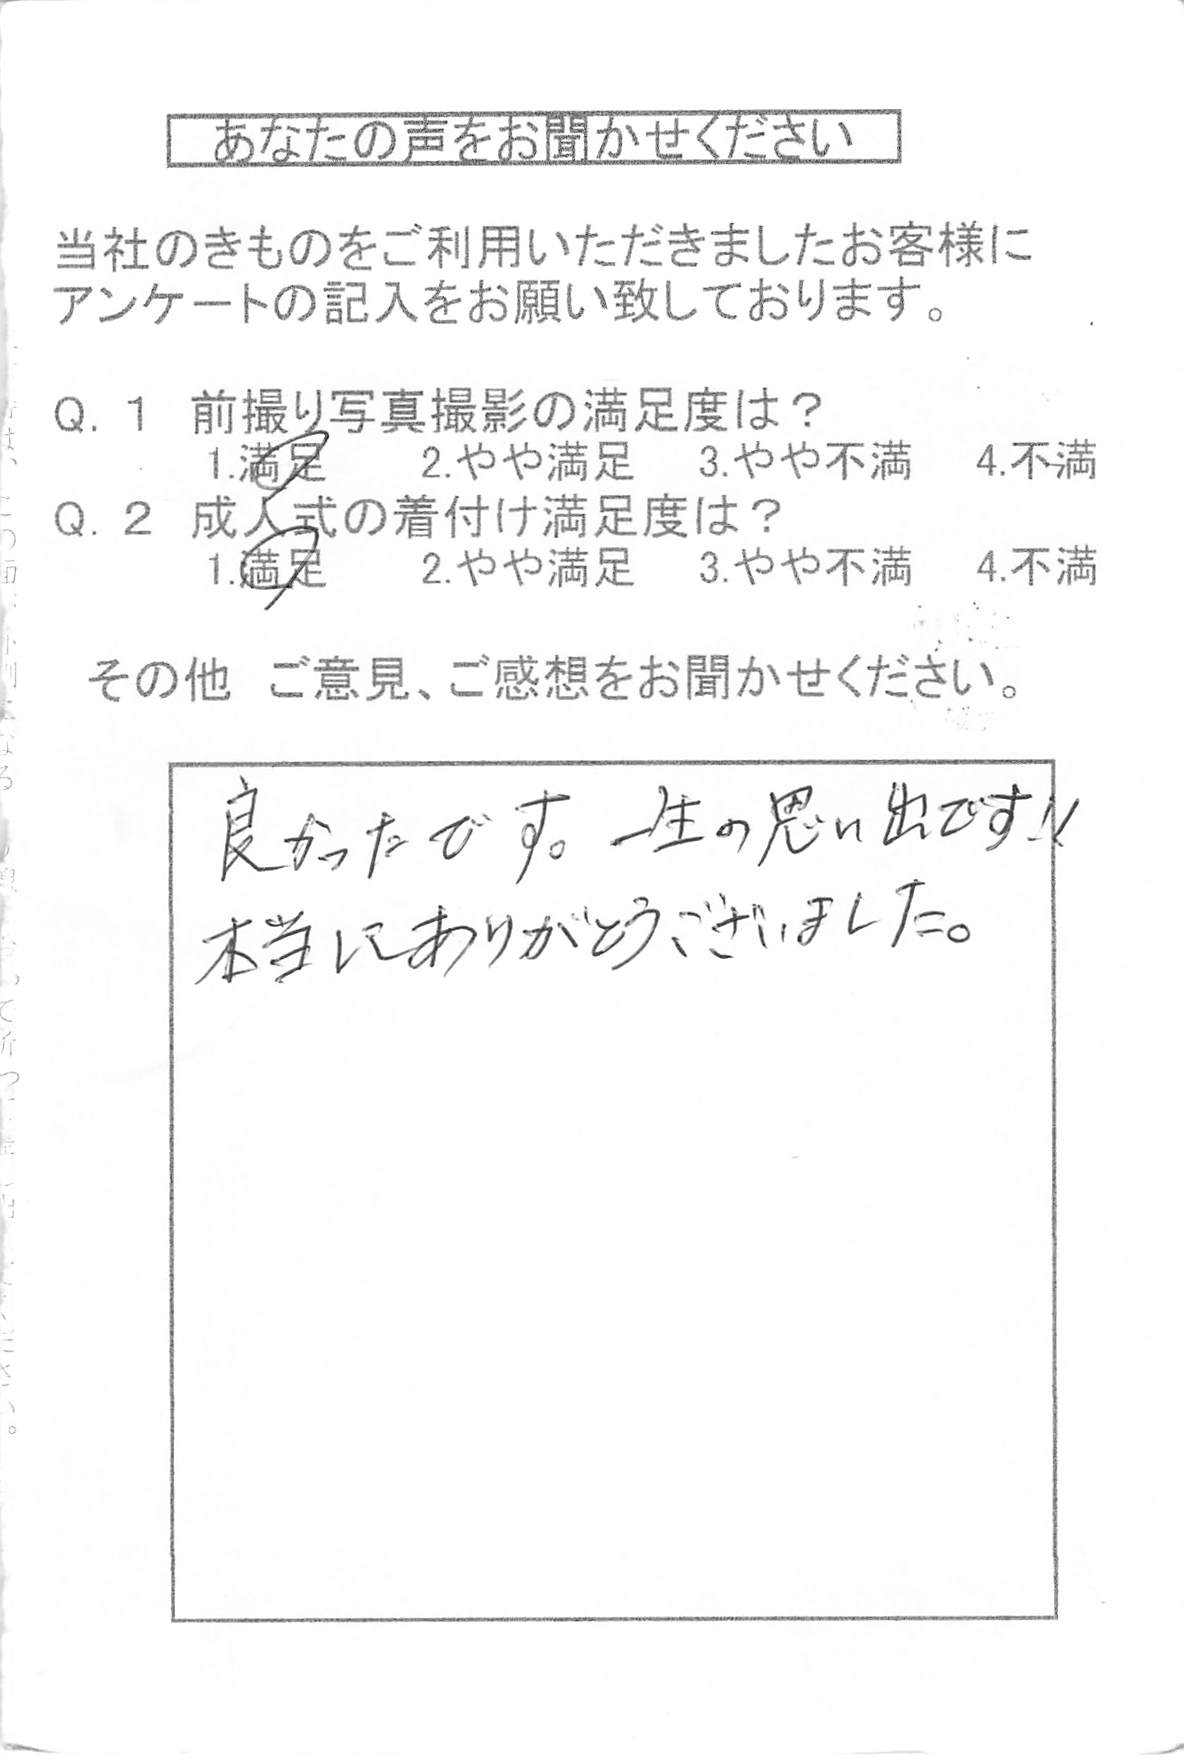 あなたの声をお聞かせください
当社のきものをご利用いただきましたお客様に
アンケートの記入をお願い致しております。
Q. 1 前撮り写真撮影の満足度は？
1.満足 2.やや満足 3.やや不満 4.不満
Q. 2 成人式の着付け満足度は？
1.満足 2.やや満足 3.やや不満 4.不満
その他 ご意見、ご感想をお聞かせください。
良かったです。一生の思い出です!!
本当にありがとうございました。